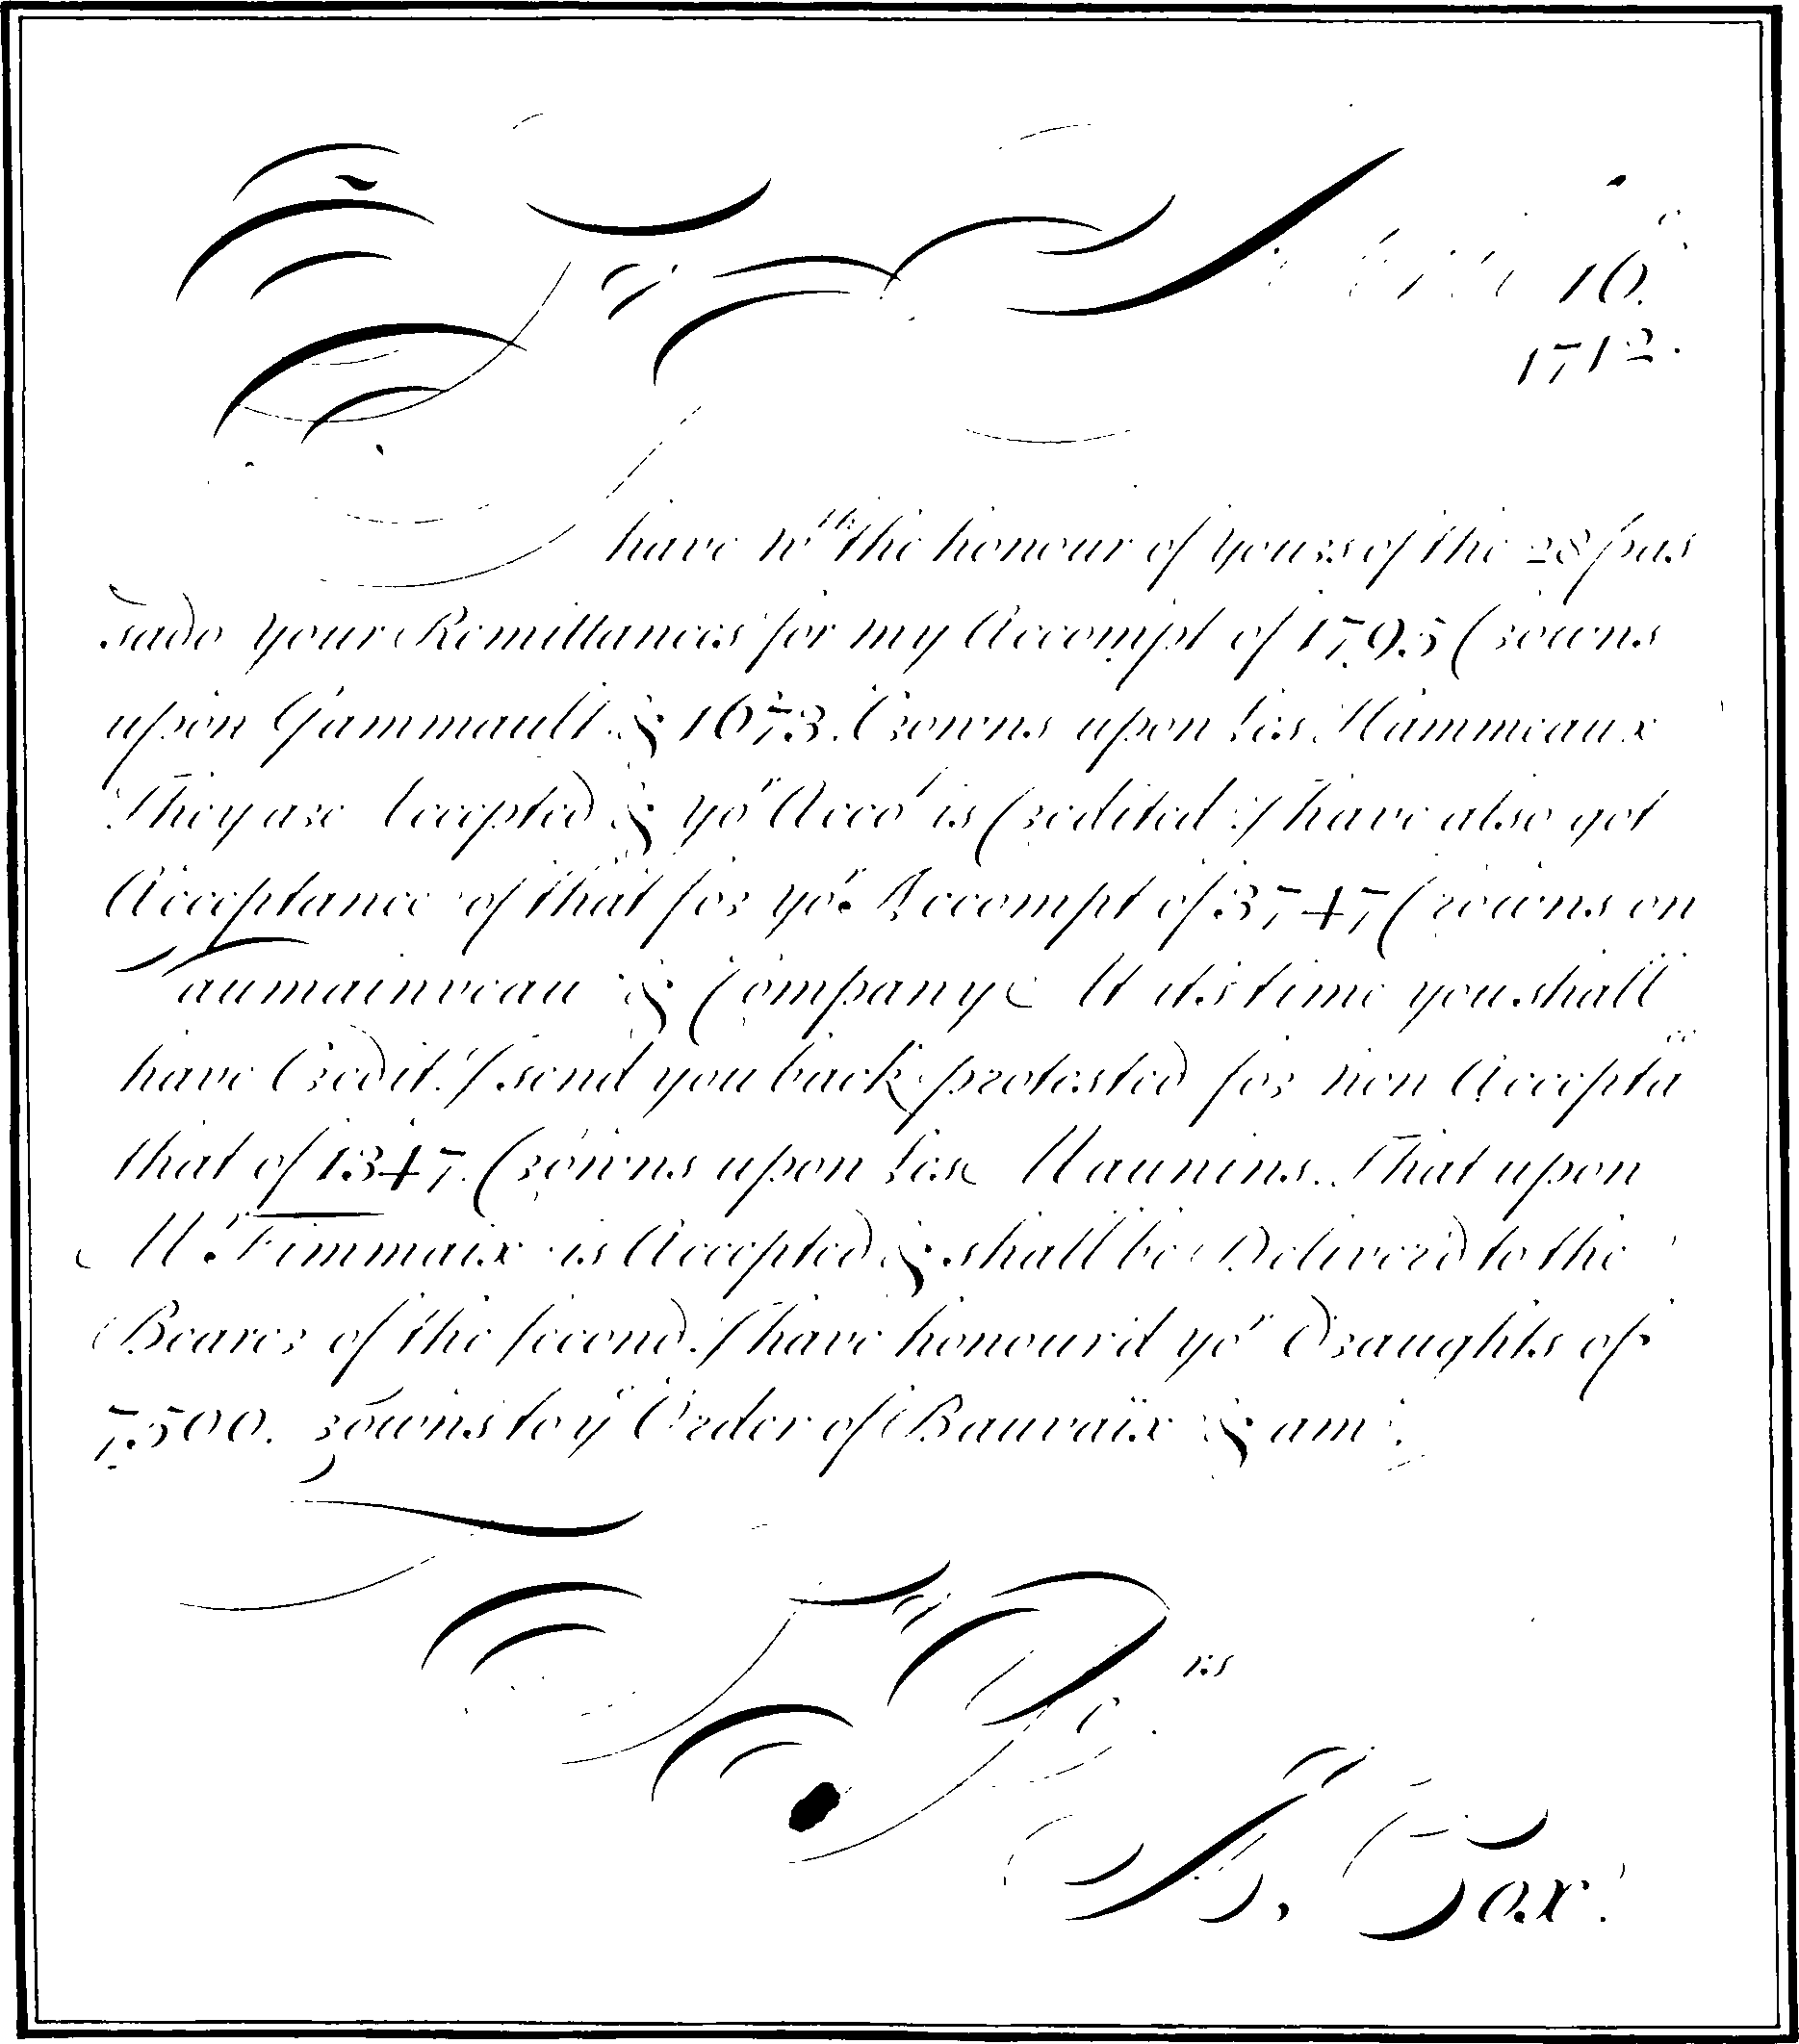 Sr. 16.
1712.
have wth the honour of yours of the 28 pas
sado your Remittances for my Accompt of 1795 Crowns
upon Gammault & 1673. Crowns upon Les Hammeaux
They are Accepted & yor Accot is Credited I have also got
Acceptance of that for yor Accompt of 3747 Crowns on
Taumainveau & Company At its time you shall
have Credit. I send you back protested for non Accepta
that of 1347. Crowns upon Les Maunins. That upon
Mr. Fimmaix is Accepted & shall be Deliverd to the
Bearer of the second. I have honourd yor Draughts of
7500. Crowns to ye Order of Bauvaix & am
rs
Fox.